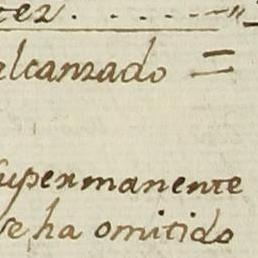 tez. . . . . . — "
alcanzado =
supermanente
se ha omitido